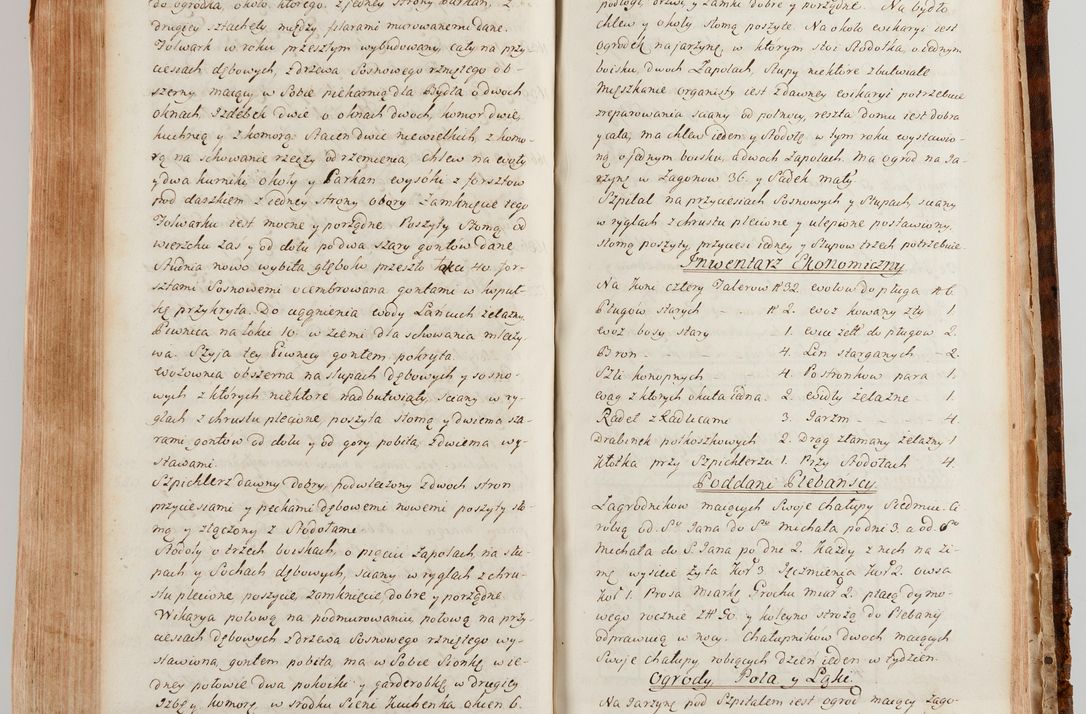 do ogrodka, około ktorego z jedney strony Parkan, z
drugiey sztachety między filarami murowanemi dane.
Folwark w roku przeszłym wybudowany, cały na przy-
ciesiach dębowych, z drzewa Sosnowego rzniętego ob-
szerny maiący w Sobie piekarnią dla Bydła o dwoch
oknach Izdebek dwie o oknach dwoch, komor dwie,
kuchnią y z komorą. Staien dwie niewielkich, z komo-
rą na schowanie rzeczy od rzemienia. Chlew na woły
y dwa kurniki około y Parkan wysoki z forsztow
pod daszkiem z jedney strony obory Zamknięcie tego
Folwarku iest mocne y porządne. Poszyty Słomą, od
wierzchu zas y od dołu po dwa szary gontow dane
Studnia nowo wybita głęboka przeszło łokci 40 for-
sztami Sosnowemi ocembrowana gontami w koput-
kę przykryta. Do ciągnienia wody Łańcuch żelazny.
Piwnica na łokci 10. w ziemi dla schowania mleczy-
wa. Szyja tey Piwnicy gontem pokryta
Wozownia obszerna na słupach dębowych y sosno-
wych z ktorych niektore nadbutwiały, sciany w ry-
glach z chrustu plecione, poszyta słomą y dwiema sza-
rami gontow od dołu y od gory pobita, z dwiema wy-
stawami.
Szpichlerz dawny dobry, podwleczony z dwoch stron
przyciesiami y peckami dębowemi nowemi poszyty sło-
mą y złączony z Stodołami.
Stodoły o trzech boiskach, o pięciu Zapolach, na słu-
pach y Sochach dębowych, sciany w ryglach z chru-
stu plecione poszycie, zamknięcie, dobre y porządne.
Wikarya połową na podmurowaniu połową na przy-
ciesiach dębowych z drzewa Sosnowego rzniętego wy-
stawiona, gontem pobita, ma w Sobie Sionkę w ie-
dney połowie dwa pokoiki y garderobkę w drugiey
Izbę y komorę w srodku Sieni Kuchenka okien 6.
podłogi, drzwi y zamki dobre y porządne. Na bydło
chlew y około słomą poszyte. Na około wikaryi iest
ogrodek na jarzynę, w ktorym stoi Stodołka, o jednym
boisku, dwoch Zapolach, Słupy niektore zbutwiałe
Mieszkanie organisty iest z dawney wikaryi potrzebuie
zreparowania sciany od połnocy, reszta domu iest dobra
y cała, ma chlew ieden y Stodołę w tym roku wystawio-
ną o jednym boisku, a dwoch Zapolach. Ma ogrod na Ja-
rzynę w Zagonow 36. y Sadek mały
Szpital na przyciesiach Sosnowych y Słupach, sciany
w ryglach z chrustu plecione y ulepione postawiony,
słomą poszyty, przyciesi iedney y Słupow trzech potrzebuie.
Inwentarz Ekonomiczny
Na Koni cztery Talerow # 32. wołow do pługa # 6.
Pługow starych - - # 2. woz kowany zły 1.
Woz bosy stary 1. wici żel: do pługow 2.
Bron - - - 4. Lin starganych - 2.
Szli konopnych - 4. Postronkow para 1.
Wag z ktorych okuta iedna. 2. widły żelazne - 1.
Radeł z Radlicami 3. Jarzm - - - 4.
Drabinek połkoszkowych 2. drąg złamany żelazny 1
Kłodka przy Szpichlerzu 1. Przy Stodołach 4.
Poddani Plebanscy
Zagrodnikow maiących Swoje chałupy Siedmiu. A
robią od Sgo Jana do Sgo Michała po dni 3. a od Sgo
Michała do S. Jana po dni 2. Każdy z nich na zi-
mę wysieie żyta Kor: 3. Jęczmienia Kor: 2. owsa
Kor: 1. Prosa Miarkę Grochu miar 2. płacą dymo-
wego rocznie Zł# 50. y koleyno strożą do Plebanij
odprawuią w nocy. Chałupnikow dwoch maiących
Swoje chałupy, robiących dzień ieden w tydzien.
Ogrody Pola y Łąki.
Na Jarzynę pod Szpitalem iest ogrod maiący Zago-